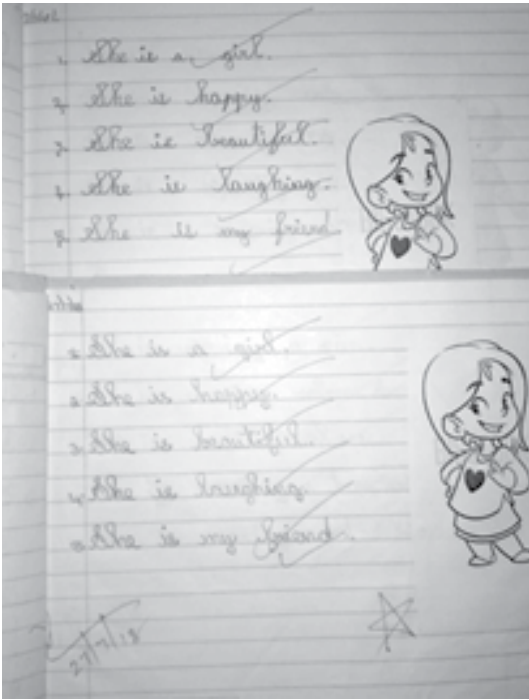 1. She is a girl.
2. She is happy.
3. She is beautiful.
4. She is laughing.
5. She is my friend
She is a girl.
2. She is happy.
3. She is beautiful.
4. She is laughing.
5. She is my friend.
27/7/18